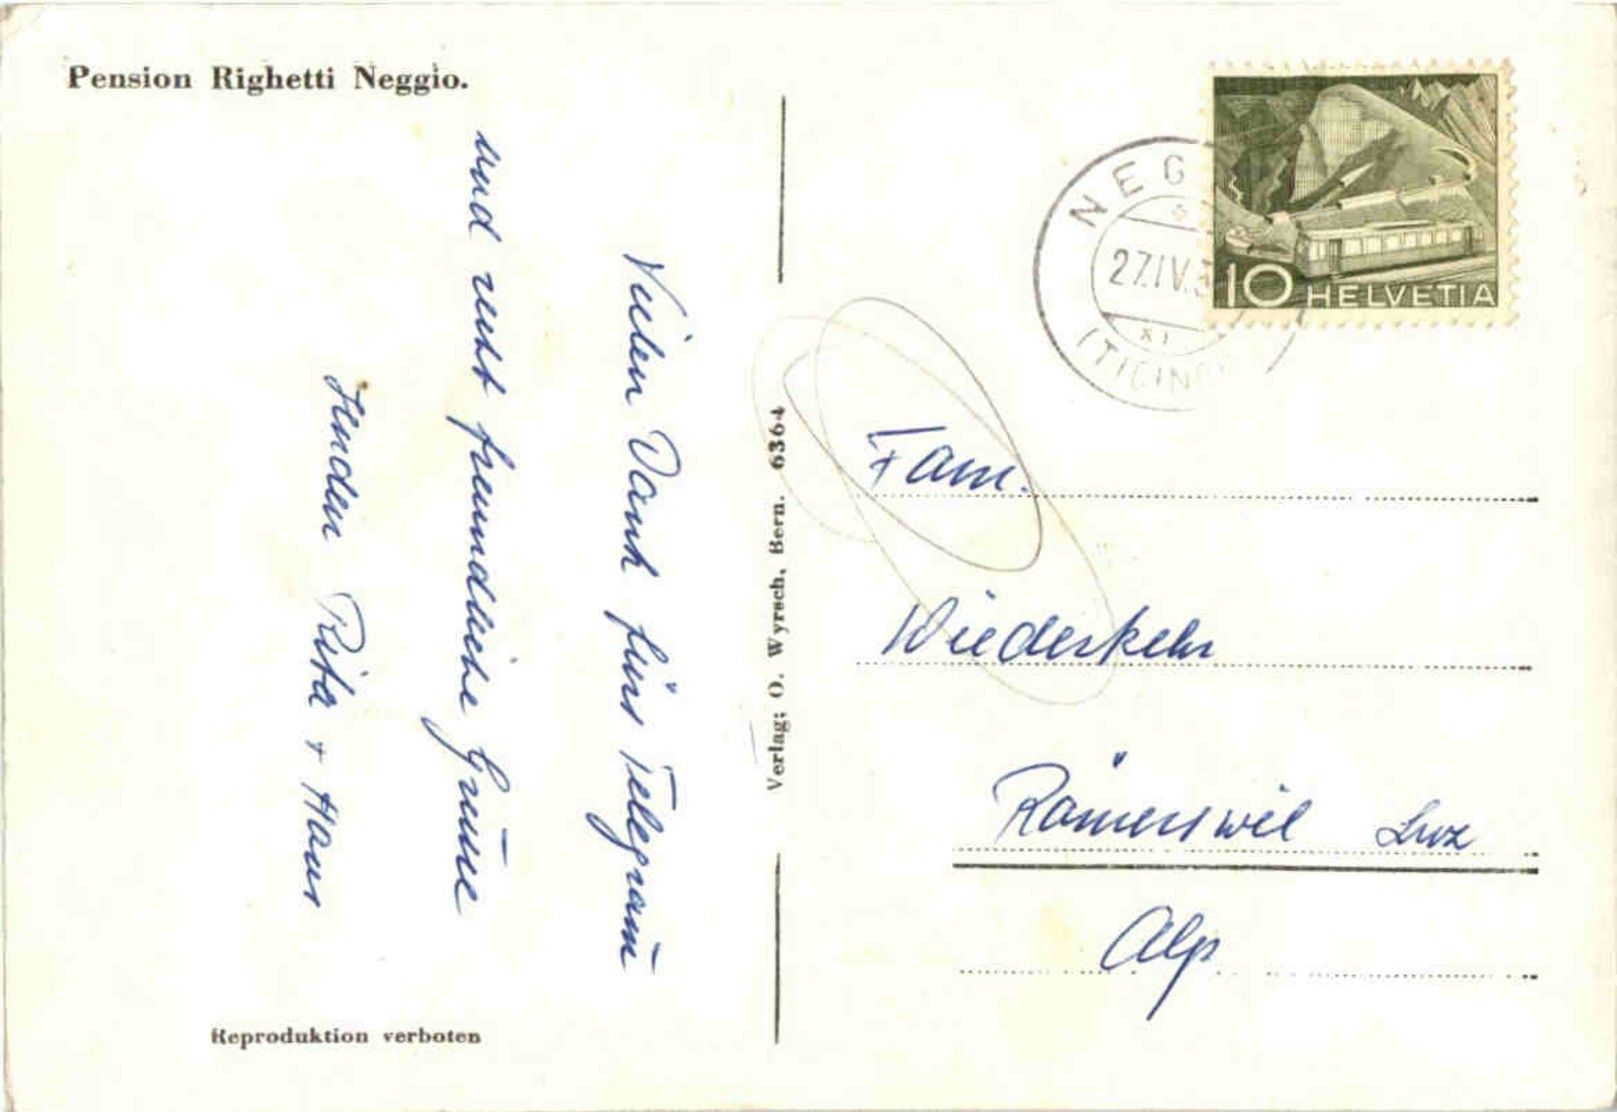 Pension Righetti Neggio.
Vielen Dank fürs Telegram̅
und recht freundliche Grüsse
senden Rita + Hans
Reproduktion verboten
Verlag; O. Wyrsch, Bern. 6364
NEG
27.IV.
(TICINO
10 HELVETIA
Fam.
Wiederkehr
Rämerswil Luz
Alp